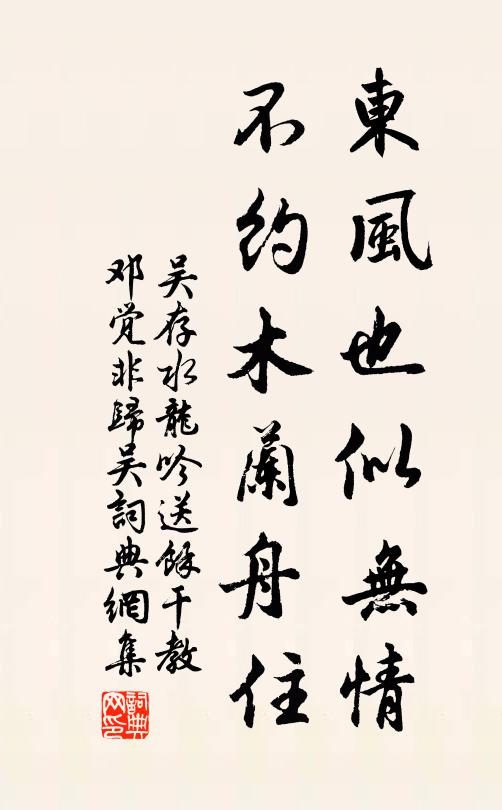 東風也似無情
不約木蘭舟住
吴存水龍吟送餘干教
邓觉非歸吴詞典網集
詞典网印